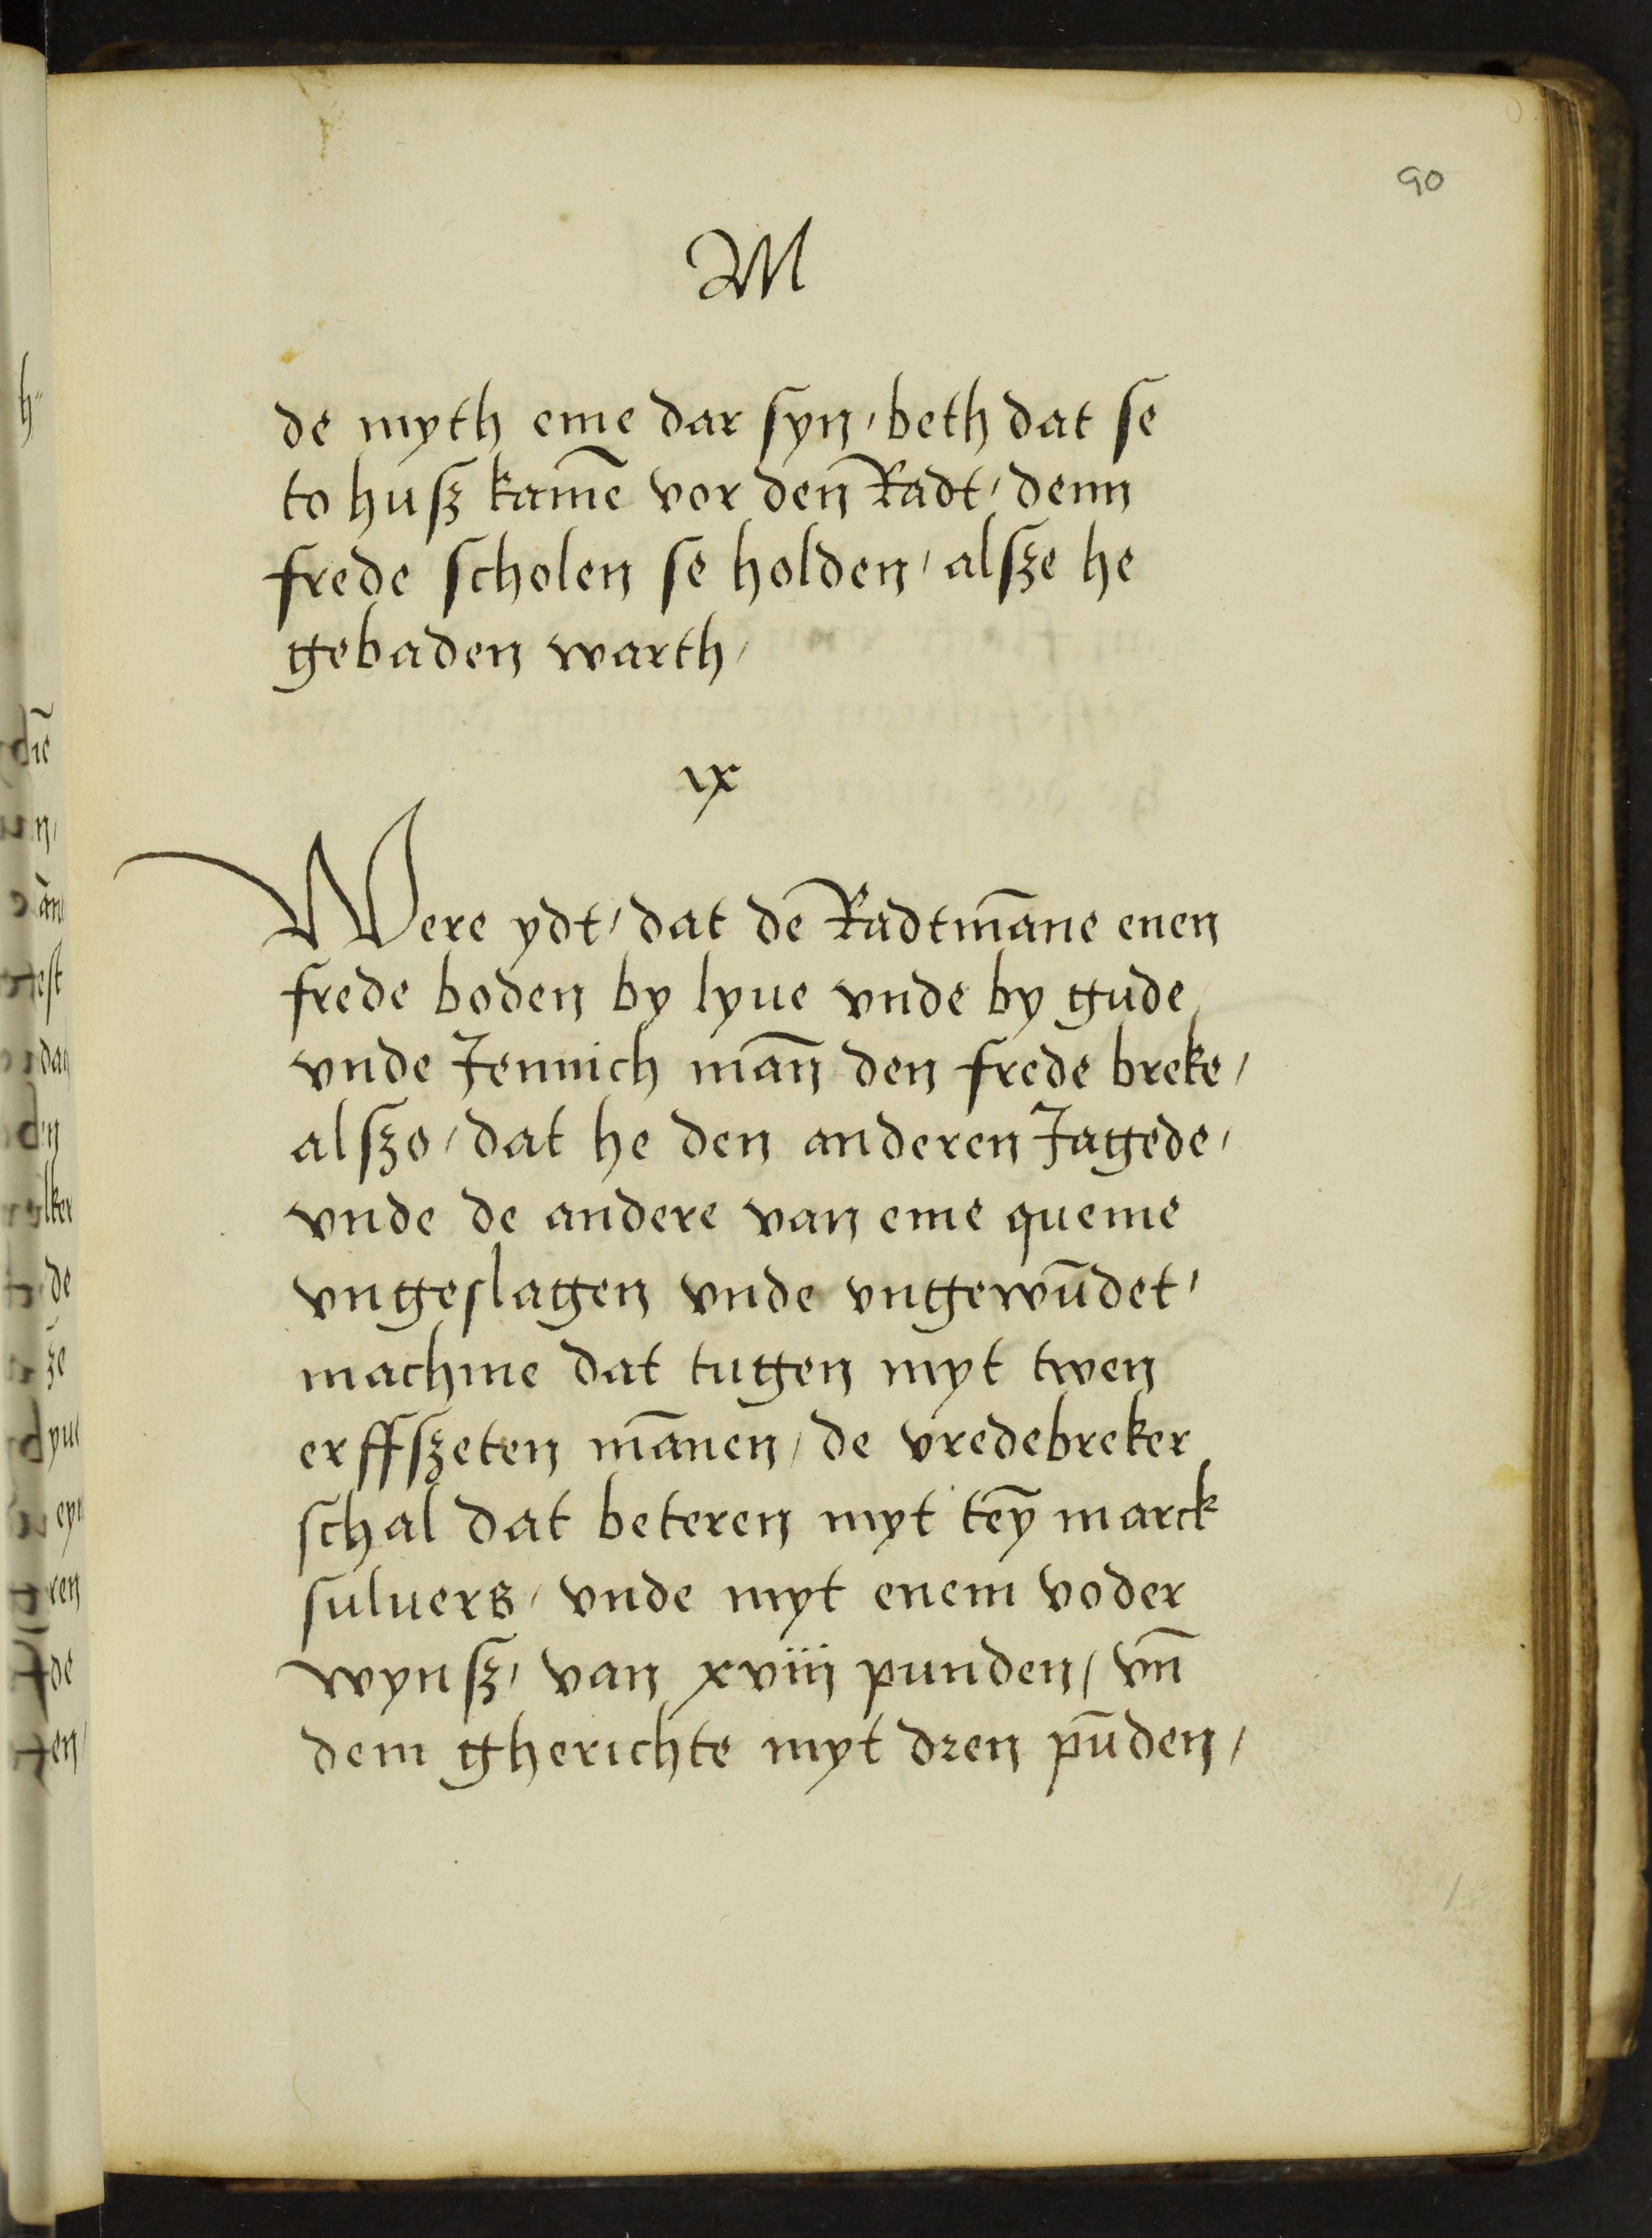 90
M
de myth eme dar syn / beth dat se
to husz kamē vor den̄ Radt / denn
frede scholen se holden / alsze he
gebaden warth /
ix
Were ydt / dat de Radtmāne enen
frede boden by lyue vnde by gude /
vnde Jennich man̄ den frede breke /
alszo / dat he den anderen Jagede /
vnde de andere van eme queme
vngeslagen vnde vngewūdet /
machme dat tugen myt twen
erffszeten mānen / de vredebreker
schal dat beteren myt teȳ marck
suluers / vnde myt enem voder
wynsz / van xviii punden / vn̄
dem gherichte myt dren pūden /